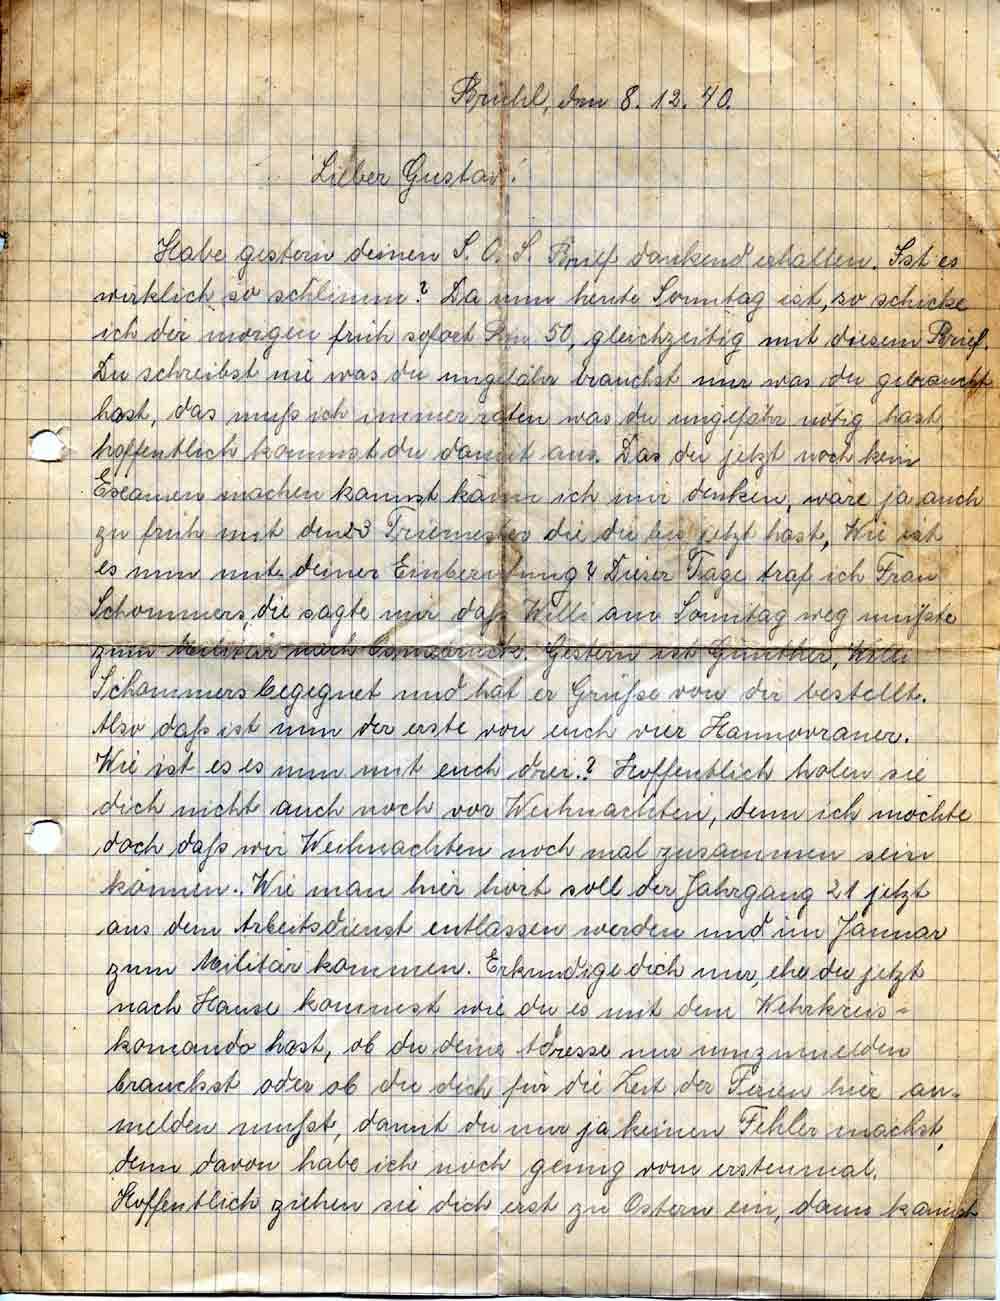 Brühl, den 8.12.40.
Lieber Gustav!
Habe gestern deinen S.O.S. Brief dankend erhalten. Ist es
wirklich so schlimm? Da nun heute Sonntag ist, so schicke
ich dir morgen früh sofort 50, gleichzeitig mit diesem Brief.
Du schreibst nie was du ungefähr brauchst nur was du gebraucht
hast, das muß ich immer raten was du ungefähr nötig hast,
hoffentlich kommst du damit aus. Das du jetzt noch kein
Examen machen kannst kann ich mir denken, wäre ja auch
zu früh mit den 3 Triemester die du bis jetzt hast, Wie ist
es nun mit deiner Einberufung? Dieser Tage traf ich Frau
Schommers, die sagte mir daß Willi am Sonntag weg müßte
zum Militär nach Osnabrück. Gestern ist Günther, Willi
Schommers begegnet und hat er Grüße von dir bestellt.
Also daß ist nun der erste von euch vier Hannovraner.
Wie ist es es nun mit euch drei.? Hoffentlich holen sie
dich nicht auch noch vor Weihnachten, denn ich möchte
doch daß wir Weihnachten noch mal zusammen sein
können. Wie man hier hört soll der Jahrgang 21 jetzt
aus dem Arbeitsdienst entlassen werden und im Januar
zum Militär kommen. Erkundige dich nur, ehe du jetzt
nach Hause kommst wie du es mit dem Wehrkreis-
komando hast, ob du deine Adresse nur umzumelden
brauchst oder ob du dich für die Zeit der Ferien hier an-
melden mußt, damit du nur ja keinen Fehler machst,
denn davon habe ich noch genug vom erstenmal.
Hoffentlich ziehen sie dich erst zu Ostern ein, dann kannst